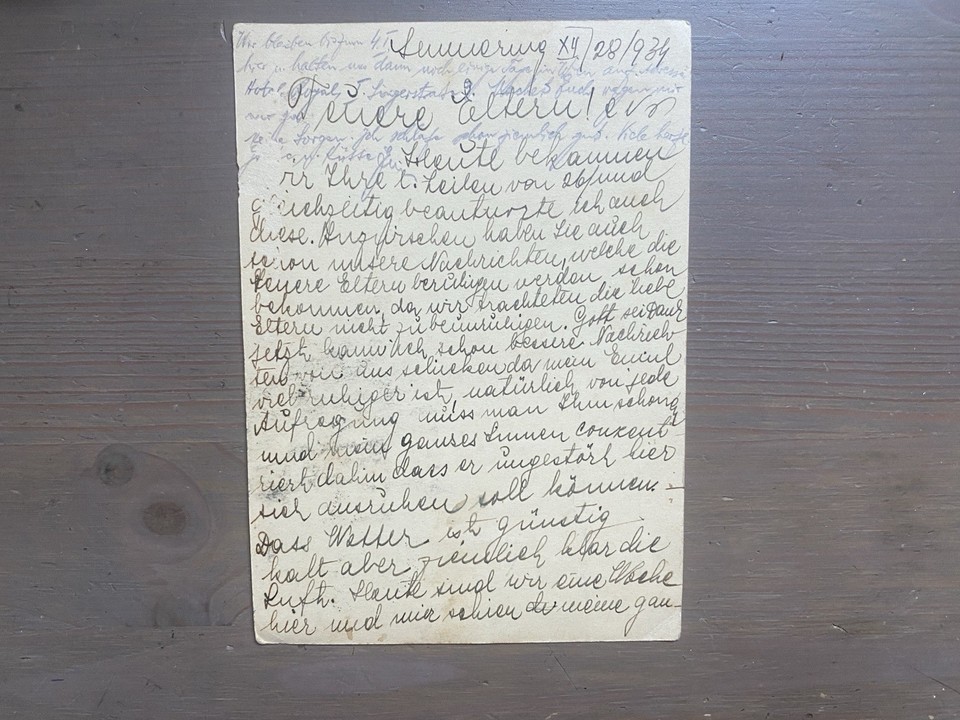 Wir bleiben bis zum 4. I.
hier u. halten uns dann noch einige Tage in Wien auf Adresse
Hotel Royal, I. Singerstrasse 3. Machet Euch wegen mir
nur gar
keine Sorgen. Ich schlafe schon ziemlich gut. Viele
Küsse
Semmering XII/28/934
Teuere Eltern!
Heute bekammen
wir Ihre l. Zeilen von 26/ und
gleichzeitig beantworte ich auch
diese. Inzwischen haben Sie auch
schon unsere Nachrichten, welche die
teuere Eltern beruhigen werden, schon
bekommen, da wir trachteten die liebe
Eltern nicht zu beunruhigen. Gott sei Dank
jetzt kann ich schon bessere Nachrich-
ten von uns schicken da mein Emil
viel ruhiger ist, natürlich von jede
Aufregung muss man Ihm schonen
und mein ganzes Sinnen conzent-
riert dahin dass er ungestört hier
sich ausruhen soll können.-
Dass Wetter ist günstig
kalt aber ziemlich klar die
Luft. Heute sind wir eine Woche
hier und mir schien da meine gan-